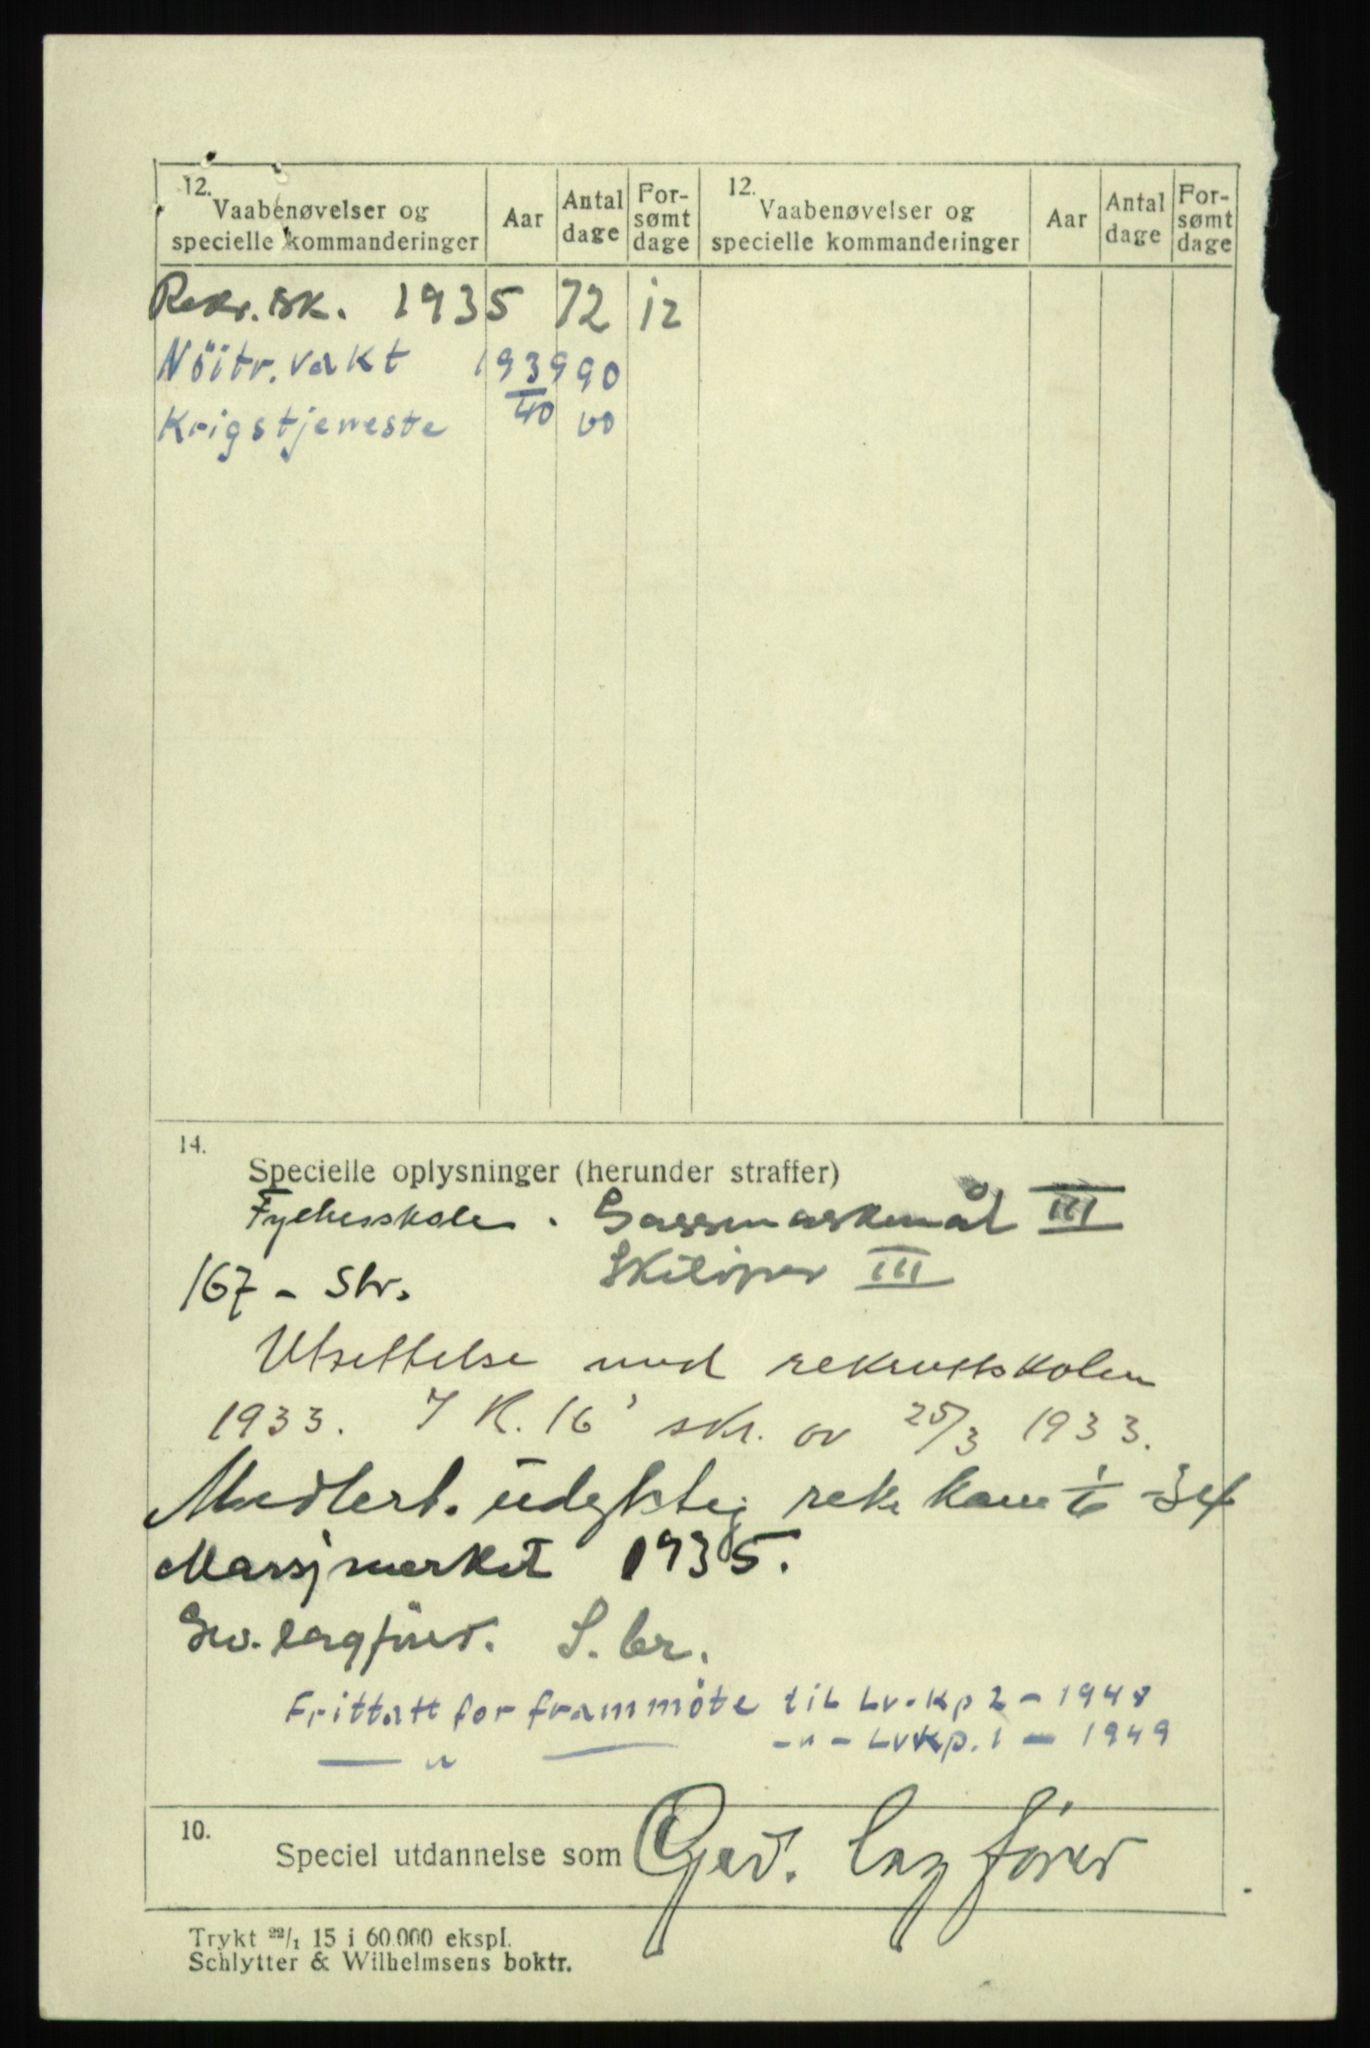 12. Vaabenøvelser og specielle kommanderinger Aar Antal dage For-sømt dage 12. Vaabenøvelser og specielle kommanderinger Aar Antal dage For-sømt dage
Rekr.sk. 1935 72 12
Nöitr.vakt 1939/40 90
Krigstjeneste 60
14.
Specielle oplysninger (herunder straffer)
Gassmaskemål III
167 - Str. Skiløper III
Utsettelse med rekruttskolen
1933. I R. 16' skr. av 25/3 1933.
Midlert. udyktig rekr. 1/6 34
Marsjmerket 1935.
Gev. lagfører. S. br.
Frittatt for frammöte til Lv.Kp 2 - 1948
— " — - " - LvKp. 1 - 1949
10.
Speciel utdannelse som Gev. lagfører
Trykt 22/1 15 i 60.000 ekspl.
Schlytter & Wilhelmsens boktr.